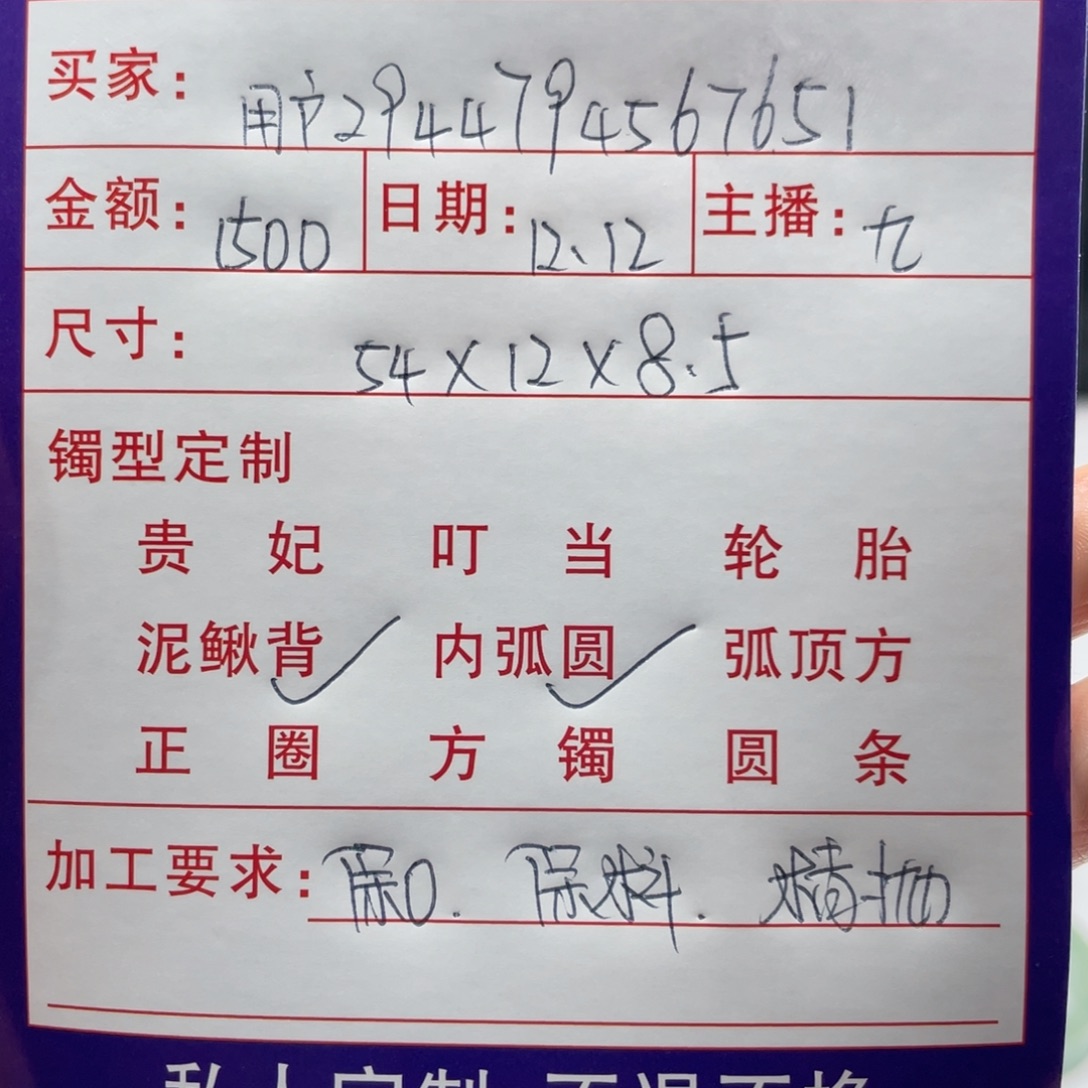 买家：用户2944794567651
金额：1500 日期：12、12 主播：九
尺寸：54×12×8.5
镯型定制
贵妃 叮当 轮胎
泥鳅背✓ 内弧圆✓ 弧顶方
正圈 方镯 圆条
加工要求：保0. 保料. 精抛
私人定制 不退不换